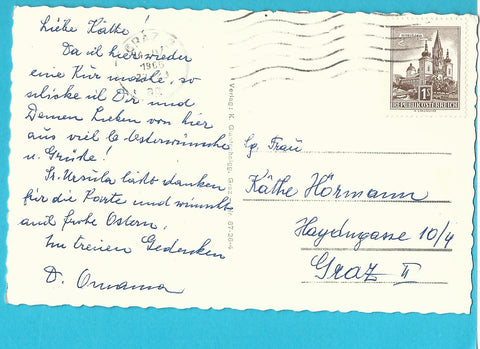 Liebe Käthe!
Da ich hier wieder
eine Kur mache, so
schicke ich Dir und
Deinen Lieben von hier
aus viel l. Osterwünsche
u. Grüße!
Sr. Ursula läßt danken
für die Karte und wünscht
auch frohe Ostern.
Im treuen Gedenken
D. Omama
GRAZ
1966
Verlag: K. Graz
REPUBLIK ÖSTERREICH
Sg. Frau
Käthe Hörmann
Haydngasse 10/4
Graz II